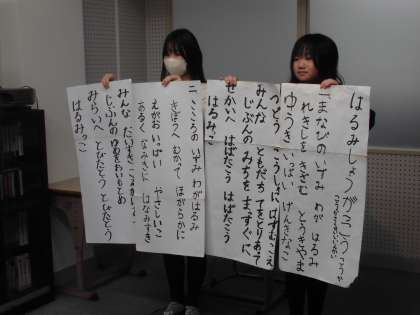 はるみしょうがっこうこうか
一 まなびのいずみ わが はるみ
れきしをきざむ とうきやま
ゆうき いっぱい げんきなこ
つどう こうしゃに はずむこえ
みんな ともだち てをとりあって
じぶんの みちを まっすぐに
せかいへ はばたこう はばたこう
はるみっこ
二 こころのいずみ わがはるみ
きぼうへ むかって ほがらかに
えがお いっぱい やさしいこ
あるく なみきみち はなみずき
みんな だいすき
じぶんの ゆめをおいもとめ
みらいへ とびたとう とびたとう
はるみっこ